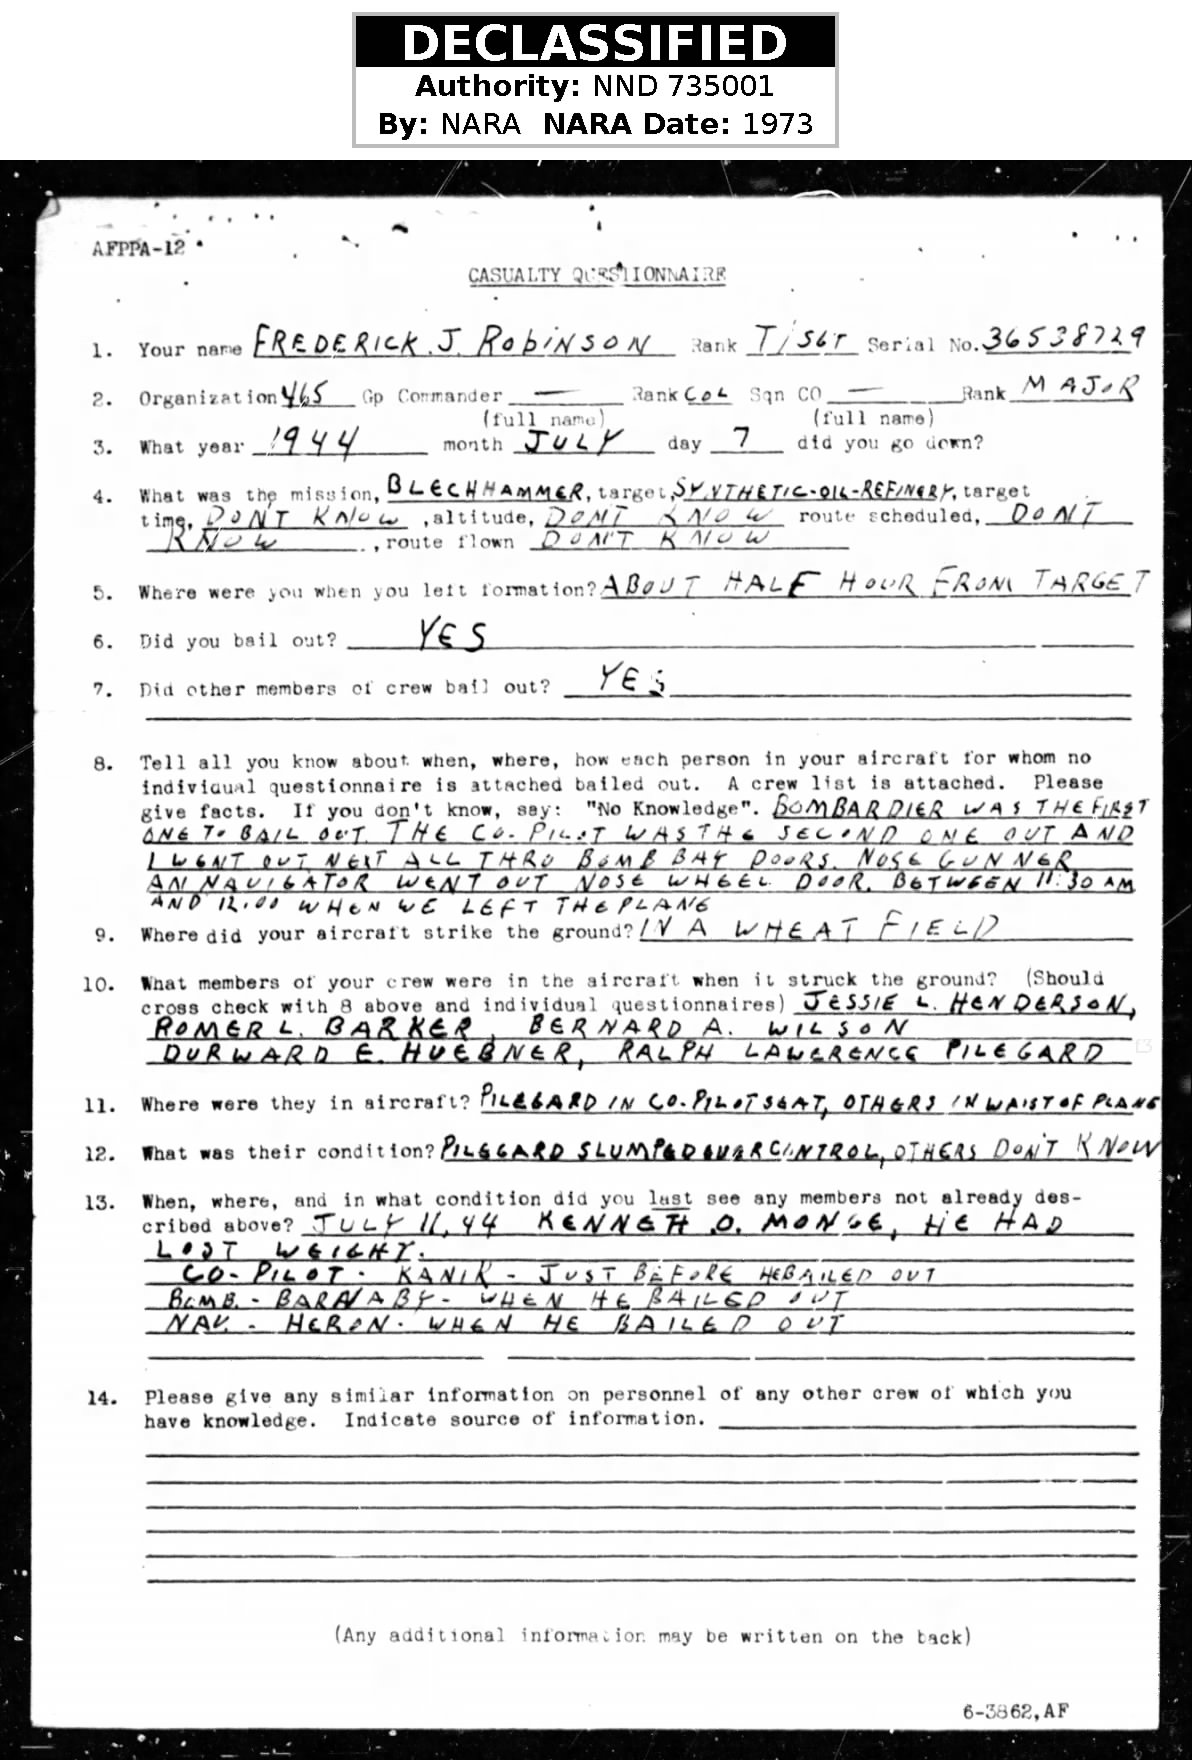 DECLASSIFIED
Authority: NND 735001
By: NARA NARA Date: 1973
AFPPA-12
CASUALTY QUESTIONNAIRE
1. Your name FREDERICK. J. ROBINSON Rank T/SGT Serial No. 36538729
2. Organization 465 Gp Commander — Rank COL Sqn CO — Rank MAJOR
(full name) (full name)
3. What year 1944 month JULY day 7 did you go down?
4. What was the mission, BLECHHAMMER, target, SYNTHETIC-OIL-REFINERY, target
time, DON'T KNOW, altitude, DONT KNOW route scheduled, DONT
KNOW, route flown DON'T KNOW
5. Where were you when you left formation? ABOUT HALF HOUR FROM TARGET
6. Did you bail out? YES
7. Did other members of crew bail out? YES
8. Tell all you know about when, where, how each person in your aircraft for whom no
individual questionnaire is attached bailed out. A crew list is attached. Please
give facts. If you don't know, say: "No Knowledge". BOMBARDIER WAS THE FIRST
ONE TO BAIL OUT. THE CO-PILOT WAS THE SECOND ONE OUT AND
I WENT OUT NEXT ALL THRU BOMB BAY DOORS. NOSE GUNNER
AN NAVIGATOR WENT OUT NOSE WHEEL DOOR. BETWEEN 11:30 AM
AND 12.00 WHEN WE LEFT THE PLANE
9. Where did your aircraft strike the ground? IN A WHEAT FIELD
10. What members of your crew were in the aircraft when it struck the ground? (Should
cross check with 8 above and individual questionnaires) JESSIE L. HENDERSON,
ROMER L. BARKER, BERNARD A. WILSON
DURWARD E. HUEBNER, RALPH LAWERENCE PILEGARD
11. Where were they in aircraft? PILEGARD IN CO-PILOT SEAT, OTHERS IN WAIST OF PLANE
12. What was their condition? PILEGARD SLUMPED OVER CONTROL, OTHERS DON'T KNOW
13. When, where, and in what condition did you last see any members not already des-
cribed above? JULY 11, 44 KENNETH O. MONGE, HE HAD
LOST WEIGHT.
CO-PILOT - KANIK - JUST BEFORE HE BAILED OUT
BOMB. - BARNABY - WHEN HE BAILED OUT
NAV. - HERON - WHEN HE BAILED OUT
14. Please give any similar information on personnel of any other crew of which you
have knowledge. Indicate source of information.
(Any additional information may be written on the back)
6-3862,AF